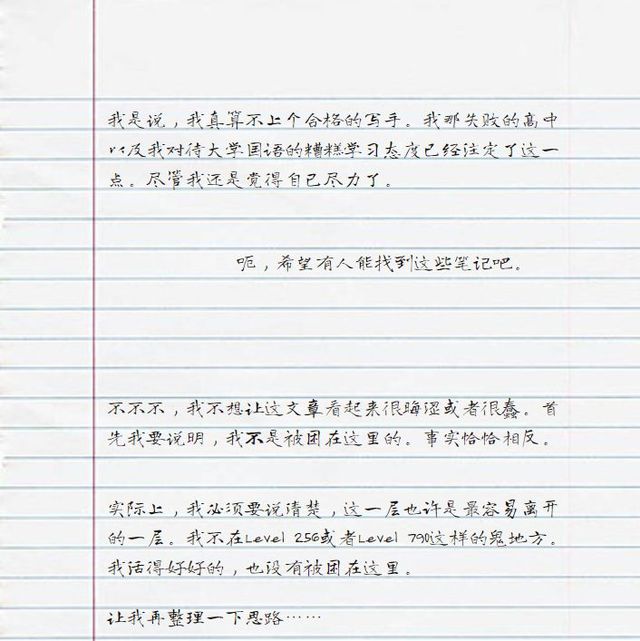 我是说，我真算不上个合格的写手。我那失败的高中
以及我对待大学国语的糟糕学习态度已经注定了这一
点。尽管我还是觉得自己尽力了。
呃，希望有人能找到这些笔记吧。
不不不，我不想让这文章看起来很晦涩或者很蠢。首
先我要说明，我不是被困在这里的。事实恰恰相反。
实际上，我必须要说清楚，这一层也许是最容易离开
的一层。我不在Level 256或者Level 790这样的鬼地方。
我活得好好的，也没有被困在这里。
让我再整理一下思路……